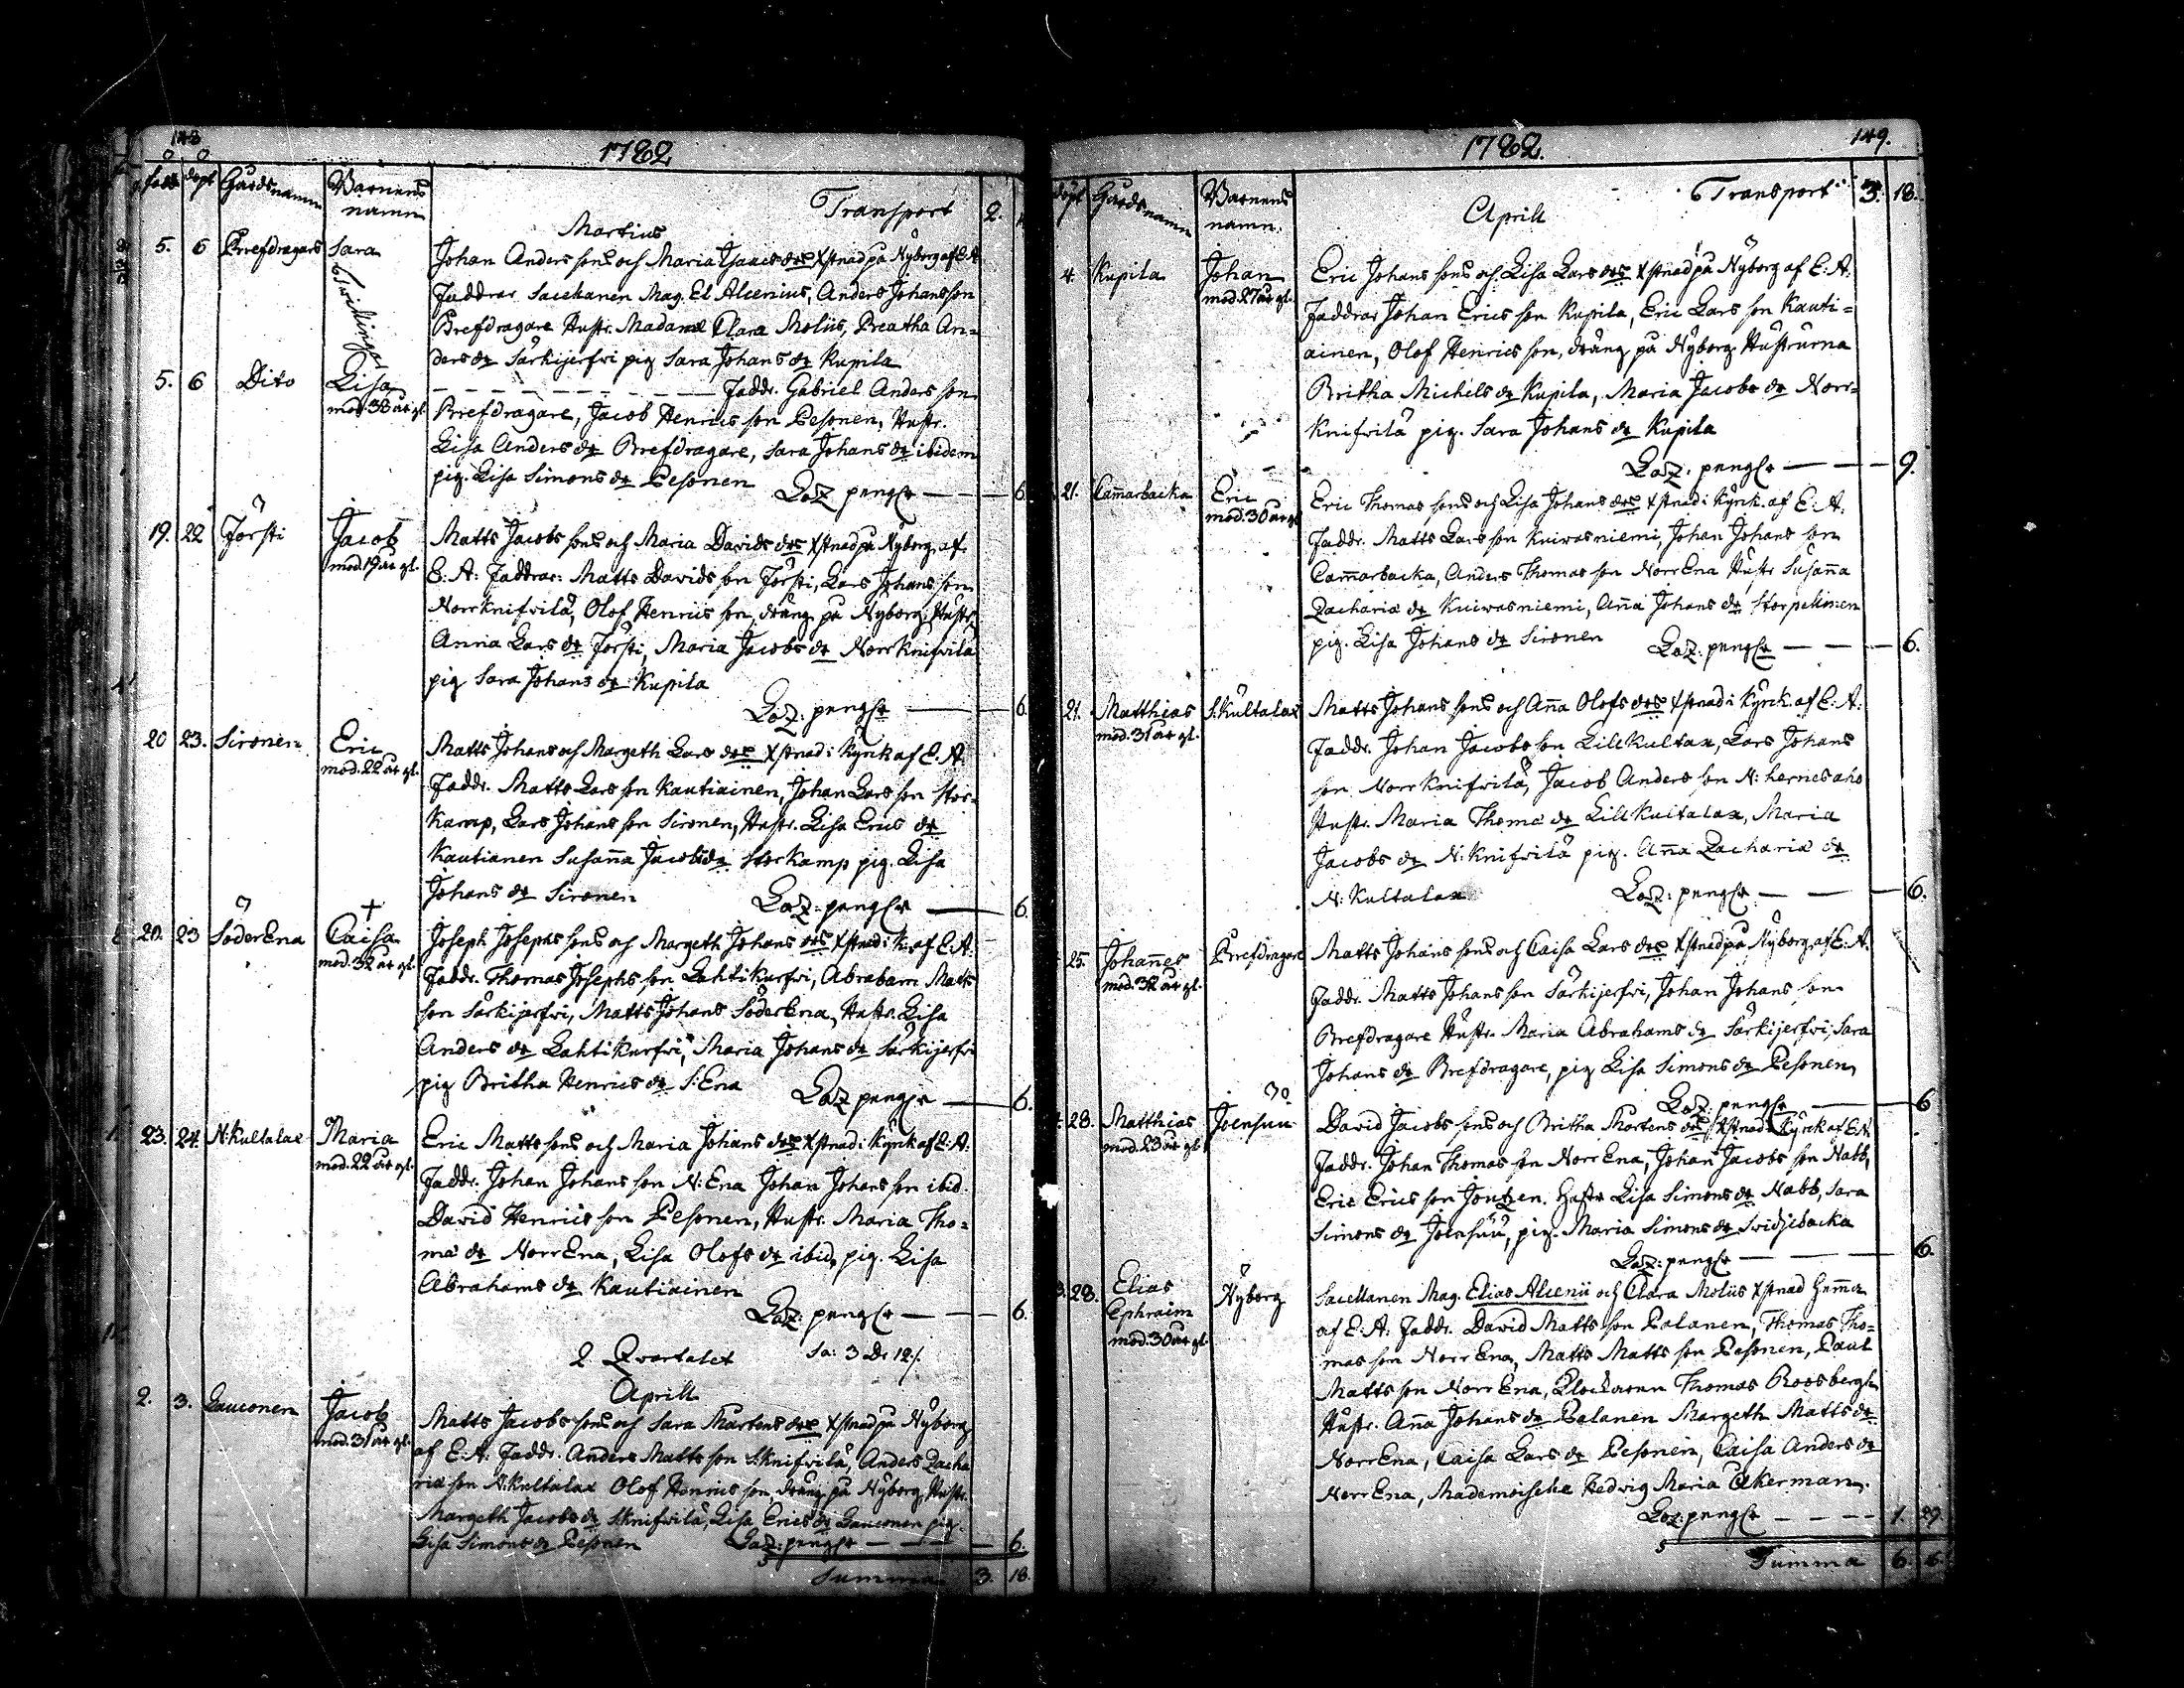 148
1782
född döpt Gårds namn Barnens namn
Transport 2.
Martius
5. 6 Brefdragars Sara
Twillingar
Johan Anders sons och Maria Isaacs dr Xstnad på Nyborg af E:A
Faddrar Sacellanen Mag. El Alcenius, Anders Johansson
Brefdragare Hustr. Madame Clara Moliis, Breatha An-
ders dr Särkijerfwi pig Sara Johans dr Kupila
5. 6 Dito Lisa
mod. 38 år gl.
Fadd. Gabriel Anders son
Brefdragare, Jacob Henrics son Pesonen, Hustr.
Lisa Anders dr Brefdragare, Sara Johans dr ibidem
pig. Lisa Simons dr Pesonen
Laz penglr 6.
19. 22 Försti Jacob
mod. 19 år gl.
Matts Jacobs sons och Maria Davids dr Xstnad på Nyborg af
E: A: Faddrar: Matts Davids son Försti, Lars Johans son
Norrknifvilä, Olof Henrics son, dräng på Nyborg, Hustr.
Anna Lars dr Försti, Maria Jacobs dr Norrknifvila
pig Sara Johans dr Kupila
Laz: penglr 6.
20 23. Sironen Eric
mod. 22 år gl.
Matts Johans och Margeth Lars dr Xstnad i Kyrk af E: A:
Fadd. Matts Lars son Kautiainen, Johan Lars son Stor-
kamp, Lars Johans son Sironen, Hustr. Lisa Erics dr
Kautianen Susanna Jacobs dr Storkamp pig. Lisa
Johans dr Sironen
Laz: penglr 6
20. 23 SöderEna Caisa
mod. 32 år gl.
Joseph Josephs sons och Margeth Johans dr Xstnad i K. af E: A:
Fadd. Thomas Josephs son Lahtikurfwi, Abraham Matts
son Särkijerfwi, Matts Johans SöderEna, Hustr. Lisa
Anders dr Lahtikurfwi, Maria Johans dr Särkijerfw
pig Britha Henrics dr S: Ena
Laz penglr 6.
23. 24. N: Kultalax Maria
mod. 22 år gl.
Eric Matts sons och Maria Johans dr Xstnad i Kyrk af E: A:
Fadd. Johan Johans son N: Ena Johan Johans son ibid
David Henrics son Pesonen, Hustr. Maria Tho-
mæ dr NorrEna, Lisa Olofs dr ibid, pig. Lisa
Abrahams dr Kautiainen
Laz: penglr 6.
2 Qvartalet Sa: 3 Dr 12:/.
Aprill
2. 3. Lauconen Jacob
mod. 31 år gl.
Matts Jacobs sons och Sara Martens dr Xstnad på Nyborg
af E: A: Fadd. Anders Matts son S: Knifvilä, Anders Zacha
riæ son N: Kultalax Olof Henrics son dräng på Nyborg, Hustr.
Margeth Jacobs dr S: Knifvilä, Lisa Erics dr Lauconen pig.
Lisa Simons dr Pesonen
Laz: penglr 6.
Summa 3. 18.
149.
1782.
döpt Gårds namn Barnens namn.
Transport 3. 18.
Aprill
4. Kupila Johan
mod. 27 år gl.
Eric Johans sons och Lisa Lars dr Xstnad på Nyborg af E: A:
Faddrar Johan Erics son Kupila, Eric Lars son Kauti-
ainen, Olof Henrics son, dräng på Nyborg Hustrurna
Britha Michels dr Kupila, Maria Jacobs dr Norr-
knifvilä pig. Sara Johans dr Kupila
Laz: penglr 9.
21. Cam̄arbacka Eric
mod. 30 år gl
Eric Thomas sons och Lisa Johans dr Xstnad i Kyrk. af E: A:
Fadd. Matts Lars son Kuiwasniemi, Johan Johans son
Cam̄arbacka, Anders Thomas son NorrEna Hustr Susan̄a
Zachariæ dr Kuiwasniemi, An̄a Johans dr Storpelkonen
pig. Lisa Johans dr Sironen
Laz: penglr 6.
21. Matthias S: Kultalax
mod. 31 år gl.
Matts Johans sons och An̄a Olofs dr Xstnad i Kyrk. af E: A:
Fadd. Johan Jacobs son Lillkultax, Lars Johans
son Norrknifvilä, Jacob Anders son N: hernesaho
Hustr. Maria Thomæ dr Lillkultalax, Maria
Jacobs dr N: Knifvilä pig. An̄a Zachariæ dr
N: Kultalax
Laz: penglr 6.
25. Johan̄es Brefdragare
mod. 32 år gl.
Matts Johans sons och Caisa Lars dr Xstnad på Nyborg af E: A.
Fadd. Matts Johans son Särkijerfwi, Johan Johans son
Brefdragare Hustr. Maria Abrahams dr Särkijerfwi, Sara
Johans dr Brefdragare, pig Lisa Simons dr Pesonen
Laz: penglr 6
28. Matthias Joensuu
mod. 23 år gl.
David Jacobs sons och Britha Mortens dr Xstnad i Kyrk af E: A.
Fadd. Johan Thomas son NorrEna, Johan Jacobs son Nabb,
Eric Erics son Joutzen. Hustr Lisa Simons dr Nabb, Sara
Simons dr Joensuu, pig. Maria Simons dr Svidjebacka
Laz: penglr 6.
28. Elias Ephraim Nyborg
mod. 30 år gl.
Sacellanen Mag. Elias Alcenii och Clara Moliis Xstnad Hem̄a
af E: A: Fadd. David Matts son Palanen, Thomas Tho-
mas son NorrEna, Matts Matts son Pesonen, Paul
Matts son NorrEna, Klockaren Thomas Roosbergh
Hustr. An̄a Johans dr Palanen Margeth Matts dr
NorrEna, Caisa Lars dr Pesonen, Caisa Anders dr
NorrEna, Mademoiselle Hedvig Maria Åkerman.
Laz: penglr 1. 29.
Summa 6. 6.